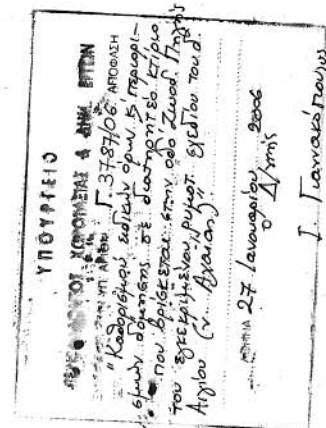 ΥΠΟΥΡΓΕΙΟ
ΠΕΡΙΒΑΛΛΟΝΤΟΣ ΧΩΡΟΤΑΞΙΑΣ & ΔΗΜ. ΕΡΓΩΝ
ΥΠ ΑΡΙΘΜ Γ. 3787/06 ΑΠΟΦΑΣΗ
"Καθορισμού ειδικών όρων & περιορι-
σμών δόμησης σε διατηρητέο κτίριο
που βρίσκεται στην οδό Ζωοδ. Πηγής
του εγκεκριμένου ρυμοτ. σχεδίου του δ.
Αιγίου (ν. Αχαΐας)"
ΑΘΗΝΑ 27 Ιανουαρίου 2006
Ο Δ/ντής
Γ. Γιαννακόπουλος